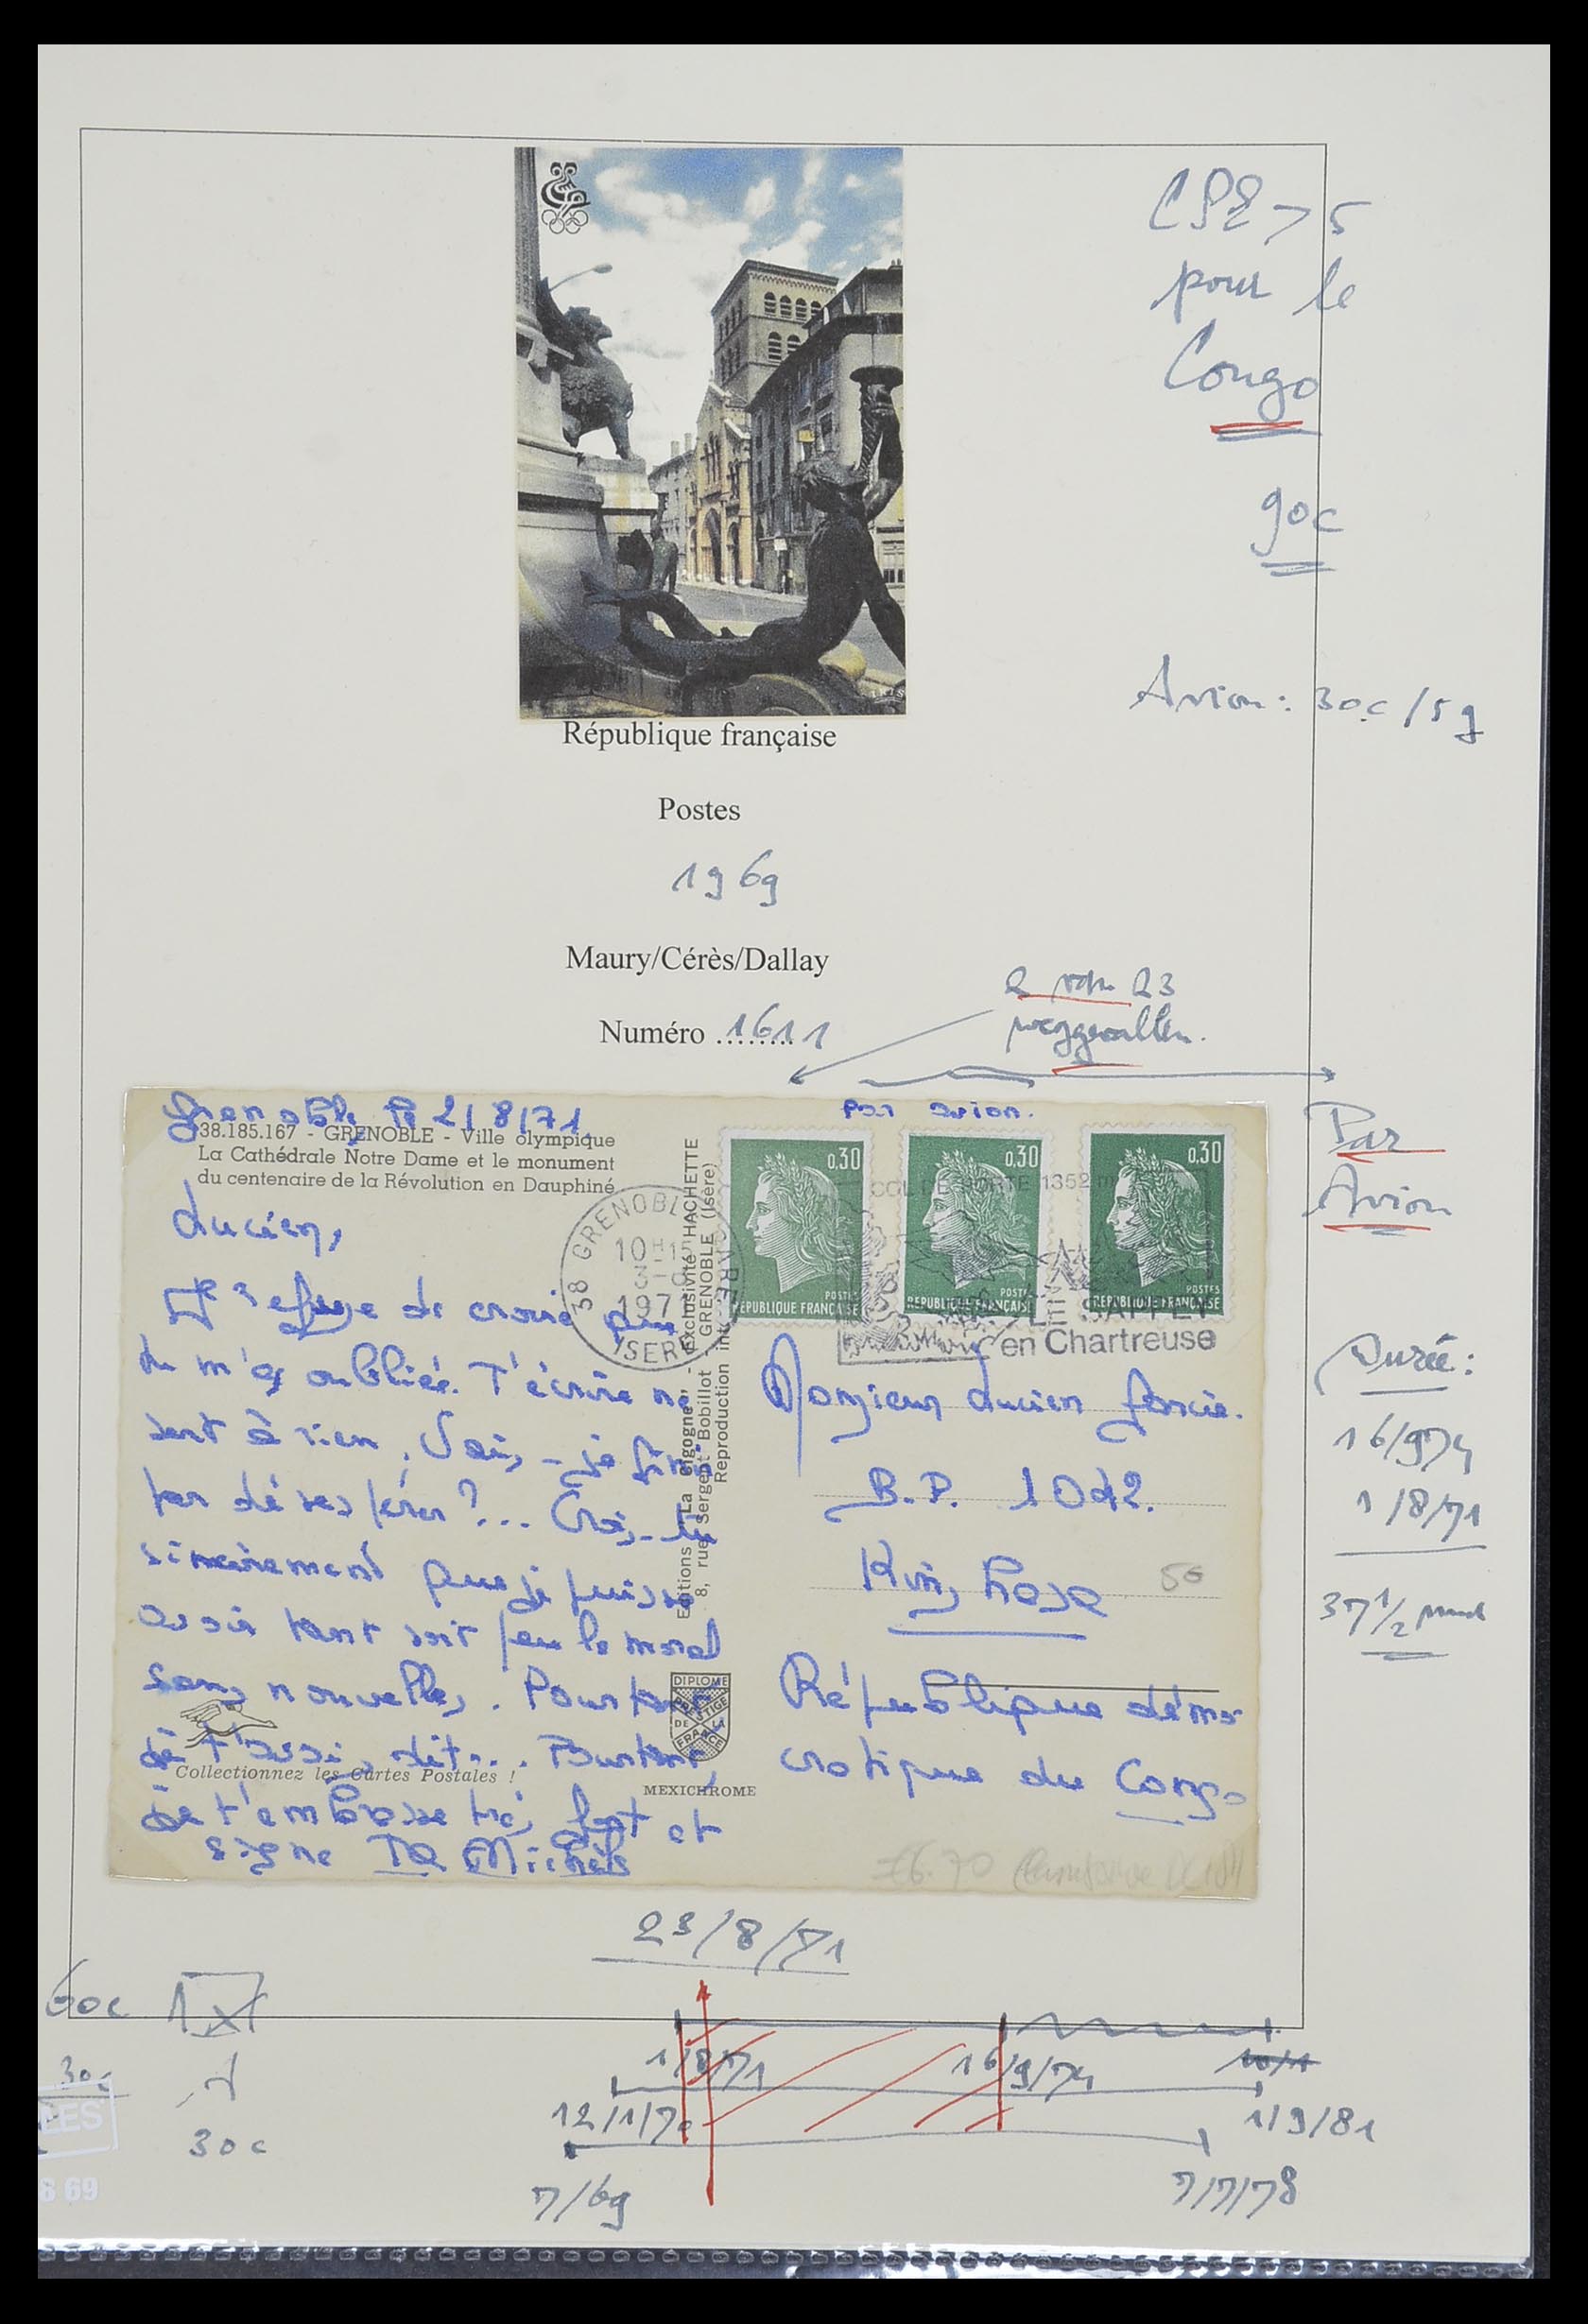 CPE > 5
pour le
Congo
90c
Avion: 30c/5g
République française
Postes
1969
Maury/Cérès/Dallay
Numéro ........ 1611
2 van 23
weggevallen.
Par
Avion
Durée:
16/9/74
1/8/71
37 1/2
Grenoble, le 2/8/71
par avion.
38.185.167 - GRENOBLE - Ville olympique
La Cathédrale Notre Dame et le monument
du centenaire de la Révolution en Dauphiné
Lucien,
Je refuse de croire que
tu m'as oubliée. T'écrire ne
sert à rien. Vais-je finir
par désespérer?... Crois-tu
sincèrement que je puisse
avoir tant soit peu le moral
sans nouvelles. Pourtant
je t'avais dit... Pourtant,
je t'embrasse très fort et
signe TA Michèle
Collectionnez les Cartes Postales !
Editions "La Cigogne" - Exclusivité HACHETTE
8, rue Sergent Bobillot - GRENOBLE (Isère)
Reproduction int
DIPLOME
PRESTIGE
DE LA
FRANCE
MEXICHROME
38 GRENOBLE GARE
10H15
3-8
1971
ISERE
0,30
POSTES
REPUBLIQUE FRANÇAISE
0,30
POSTES
REPUBLIQUE FRANÇAISE
0,30
POSTES
REPUBLIQUE FRANÇAISE
COL DE PORTE 1352 m
LE SAPPEY
en Chartreuse
Monsieur Lucien
B.P. 1042.
Kinshasa
50
République démo
cratique du Congo
23/8/71
60c
30c
30c
1/8/71
16/9/74
12/1/70
1/9/81
7/69
7/7/78
LES
69